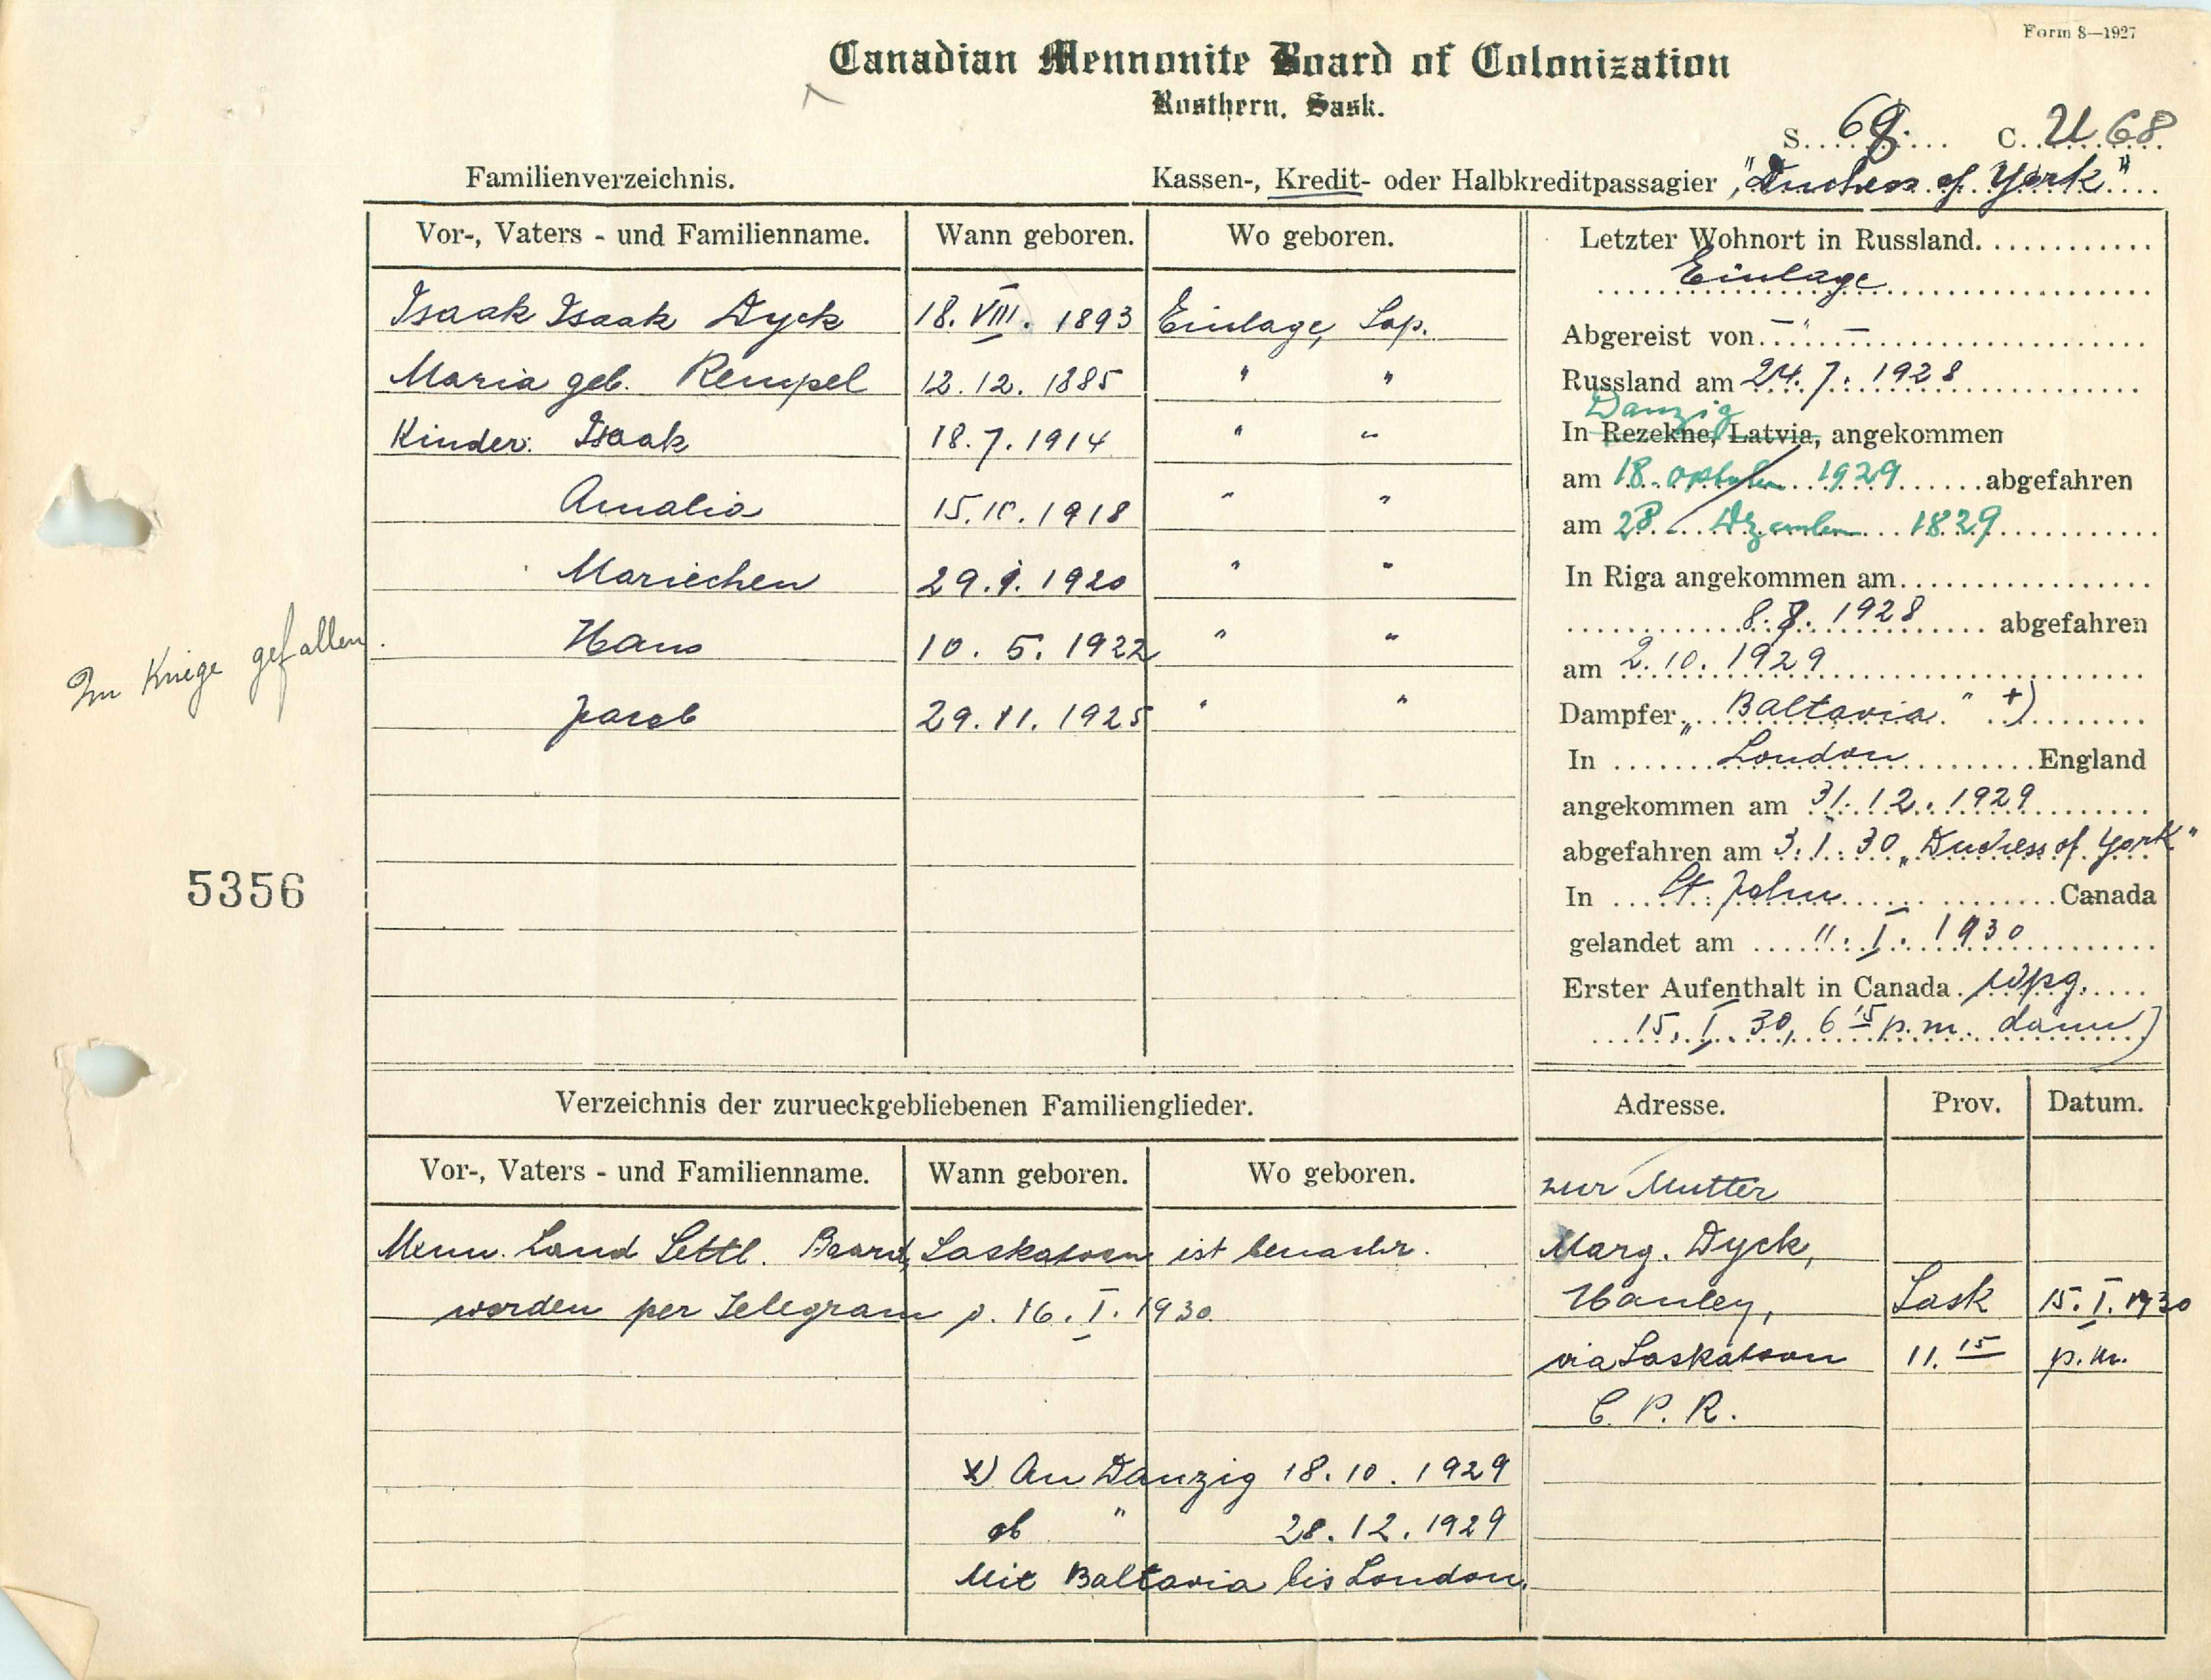 Form 8—1927
Canadian Mennonite Board of Colonization
Rosthern, Sask.
S. 68. C. U 68
Familienverzeichnis.
Kassen-, Kredit- oder Halbkreditpassagier „Duchess of York"
Vor-, Vaters - und Familienname. Wann geboren. Wo geboren.
Isaak Isaak Dyck 18. VIII. 1893 Einlage, Sap.
Maria geb. Rempel 12. 12. 1885 " "
Kinder: Isaak 18. 7. 1914 " "
Amalia 15. 10. 1918 " "
Mariechen 29. 9. 1920 " "
Hans 10. 5. 1922 " "
Im Kriege gefallen
Jacob 29. 11. 1925 " "
5356
Letzter Wohnort in Russland
Einlage
Abgereist von — " —
Russland am 24. 7. 1928
Danzig
In Rezekne, Latvia, angekommen
am 18. 1929 abgefahren
am 28 Dezember 1829
In Riga angekommen am
8. 8. 1928 abgefahren
am 2. 10. 1929
Dampfer „Baltavia" +)
In London England
angekommen am 31. 12. 1929
abgefahren am 3. 1. 30 „Duchess of York"
In St. John Canada
gelandet am 11. I. 1930
Erster Aufenthalt in Canada Wpg.
15. I. 30, 6 15 p.m. dann)
Verzeichnis der zurueckgebliebenen Familienglieder.
Vor-, Vaters - und Familienname. Wann geboren. Wo geboren.
Menn. Land Settl. Board, Saskatoon ist benachr.
worden per Telegram p. 16. I. 1930.
x) An Danzig 18. 10. 1929
ab " 28. 12. 1929
Mit Baltavia bis London.
Adresse. Prov. Datum.
zur Mutter
Marg. Dyck,
Hanley, Sask 15. I. 1930
via Saskatoon 11. 15 p.m.
C. P. R.